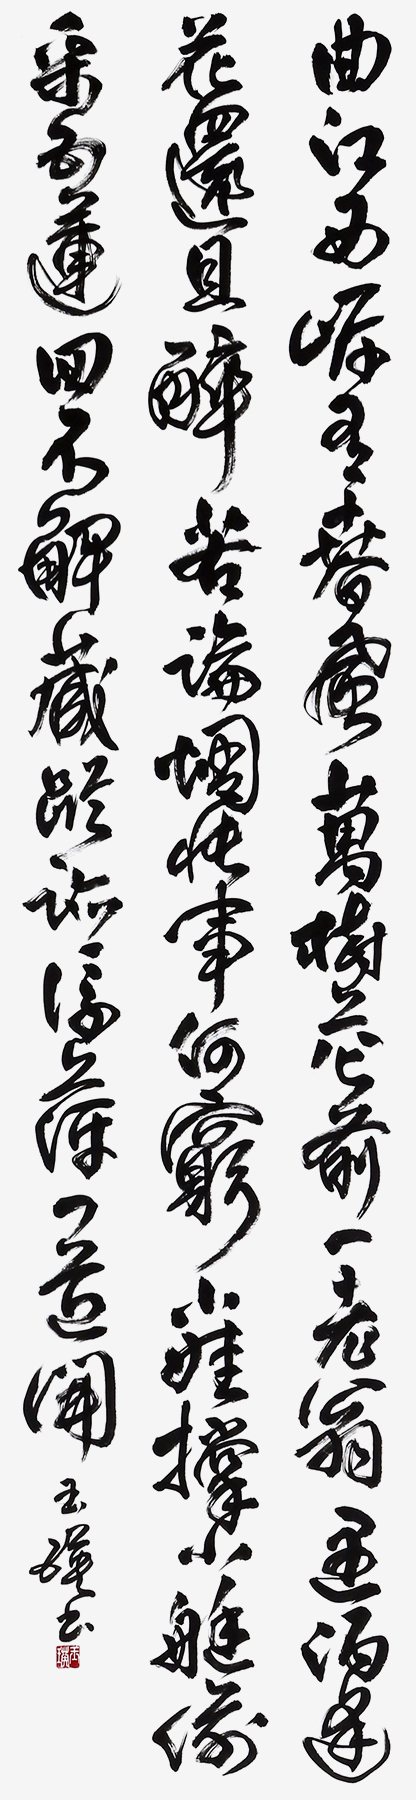 曲江西岸有春風萬樹花前一老翁遇酒逢
花還且醉若論惆悵事何窮小娃撐小艇偷
采白蓮回不解藏蹤跡浮萍一道開
玉瑛書